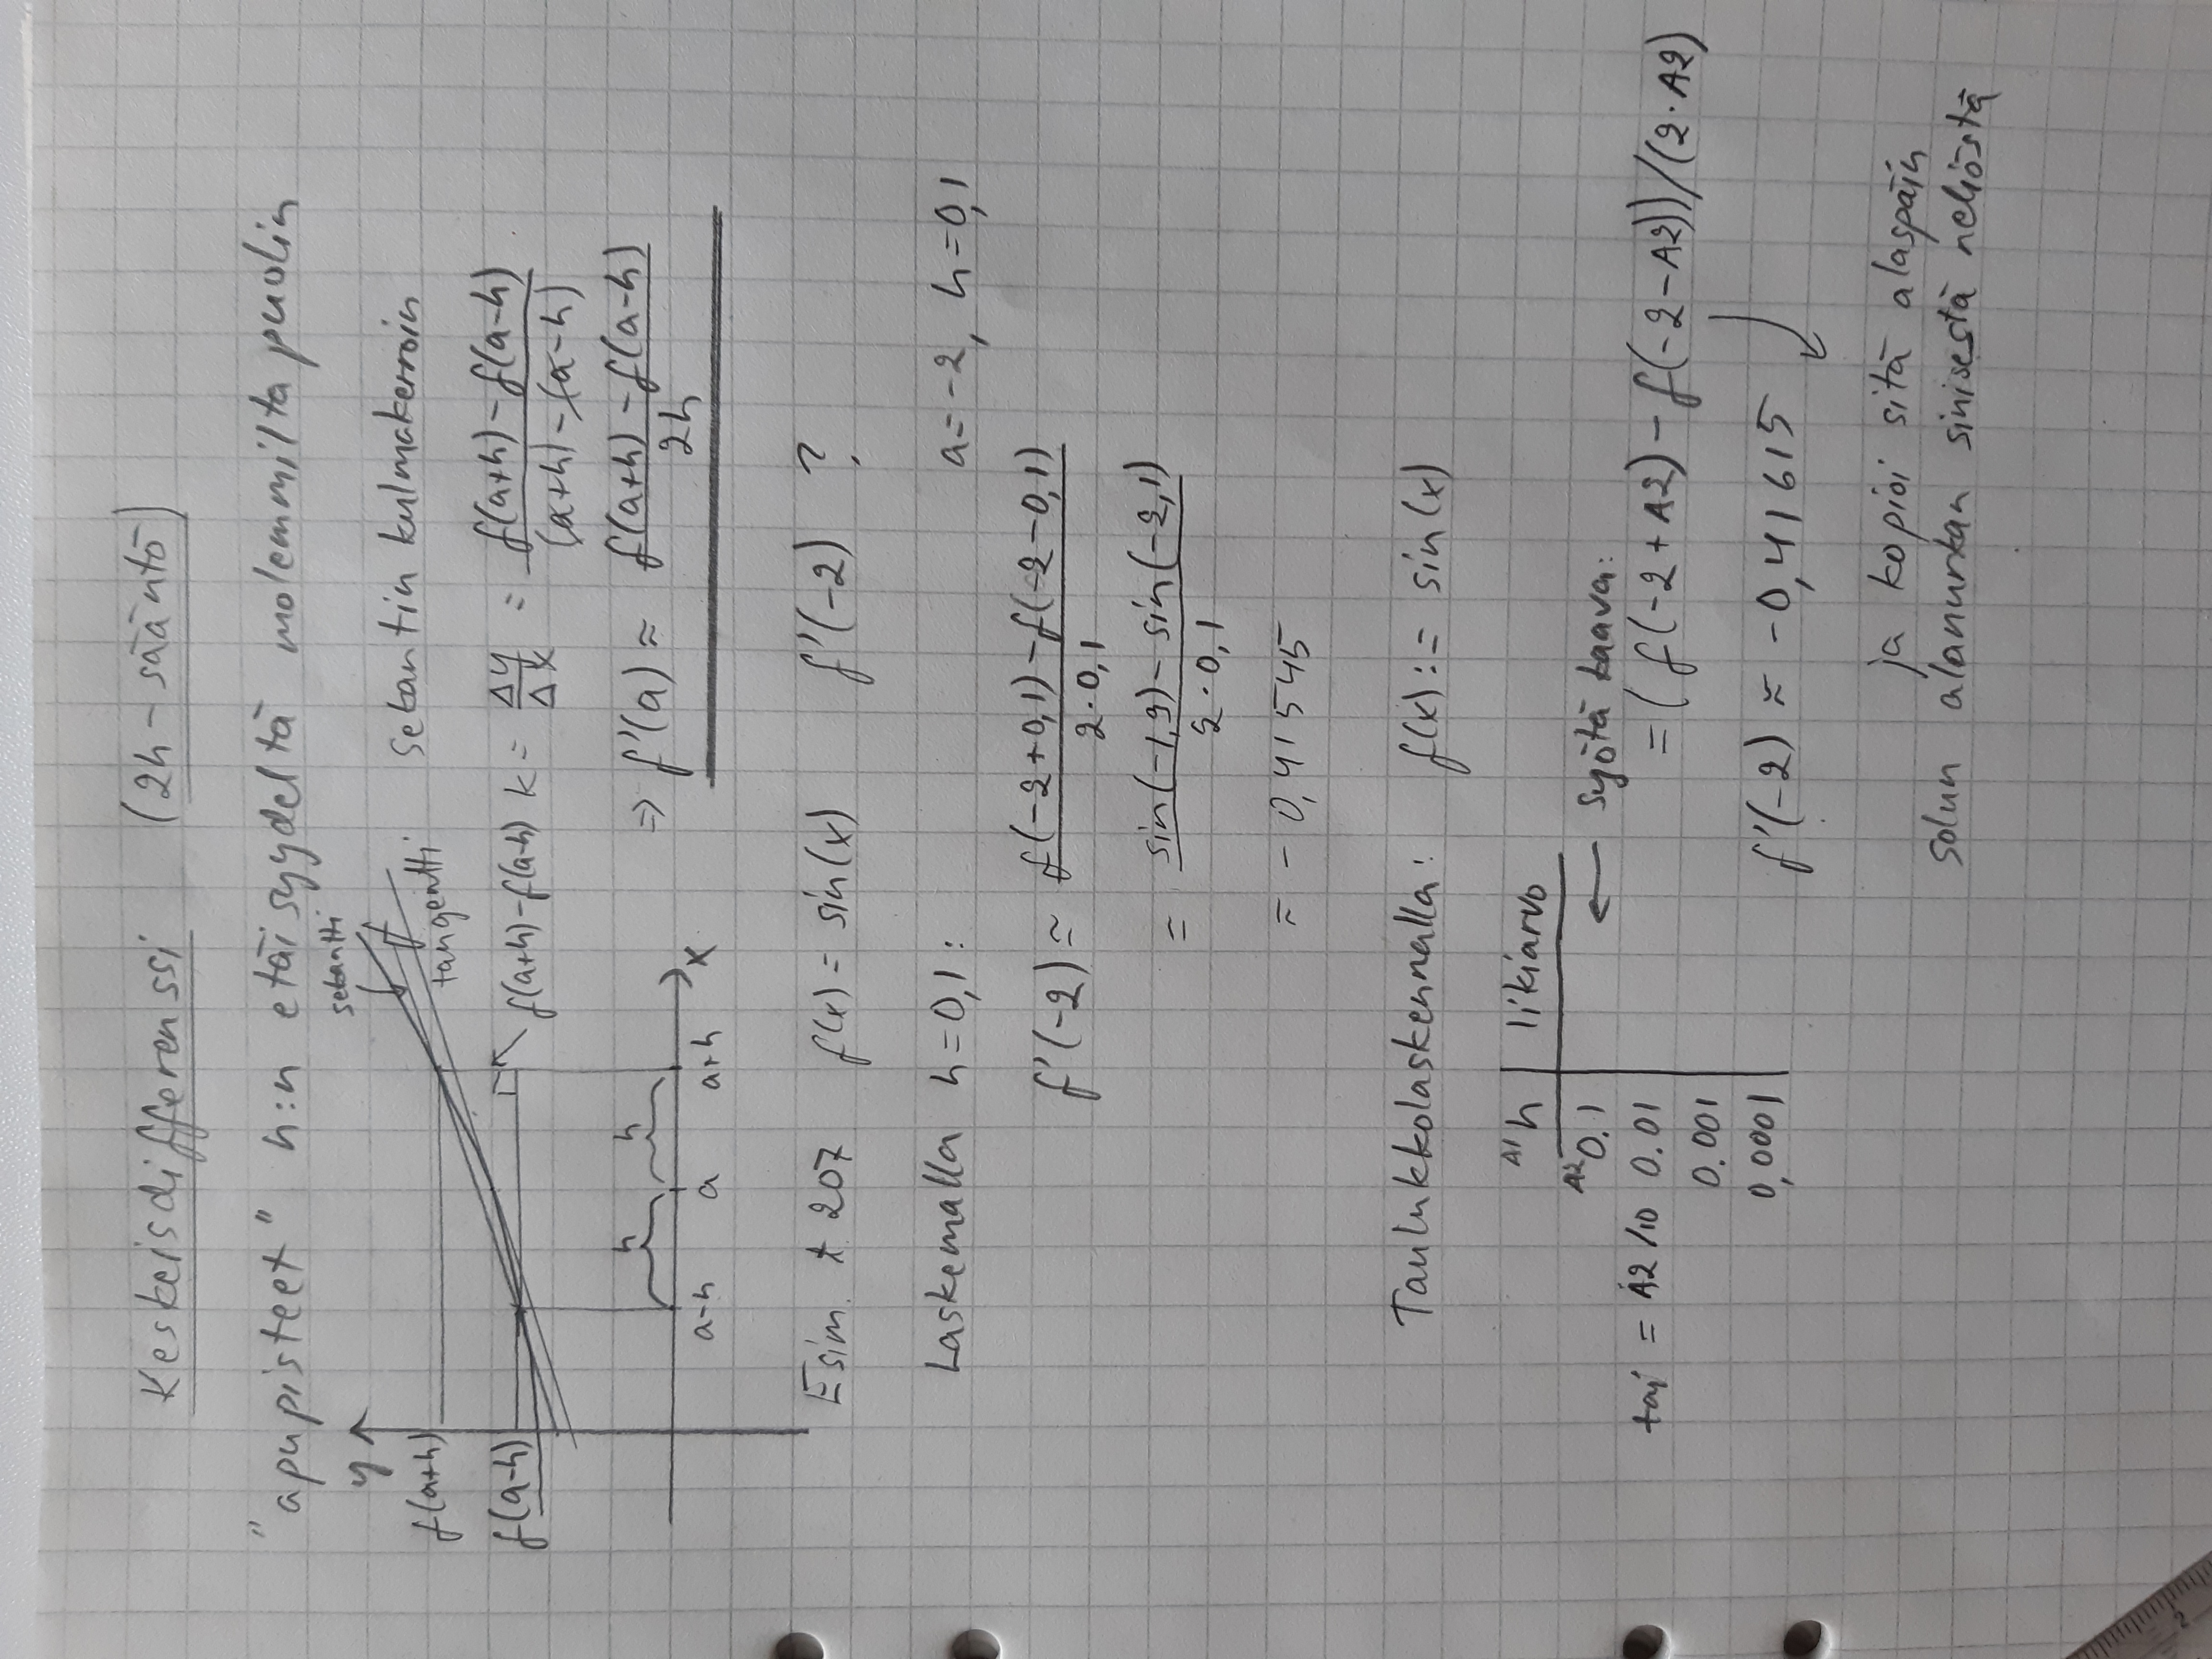 Keskeisdifferenssi (2h-sääntö)
"apupisteet" h:n etäisyydeltä molemmilta puolin
y
sekantti
tangentti
f(a+h)
f(a-h)
f(a+h)-f(a-h)
h h
a-h a a+h x
Sekantin kulmakerroin
k = Δy/Δx = (f(a+h)-f(a-h))/((a+h)-(a-h))
=> f'(a) ≈ (f(a+h)-f(a-h))/2h
Esim t 207 f(x) = sin(x) f'(-2) ?
Laskemalla h=0,1: a=-2, h=0,1
f'(-2) ≈ (f(-2+0,1)-f(-2-0,1))/(2·0,1)
= (sin(-1,9)-sin(-2,1))/(2·0,1)
≈ -0,415545
Taulukkolaskennalla: f(x):= sin(x)
A1 h likiarvo
A2 0.1 ← syötä kaava:
tai = A2/10 0.01 =(f(-2+A2)-f(-2-A2))/(2·A2)
0.001
0,0001 f'(-2) ≈ -0,41615
ja kopioi sitä alaspäin
solun alanurkan sinisestä neliöstä
2